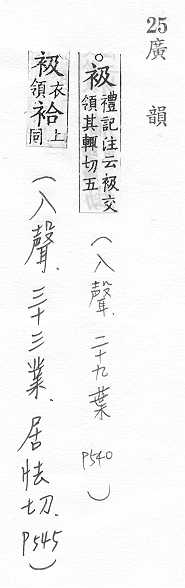 25
廣韻
○衱禮記注云衱交
領其輒切五
(入聲.二十九葉 P540)
衱衣領袷上同
(入聲.三十三業.居怯切.P545)